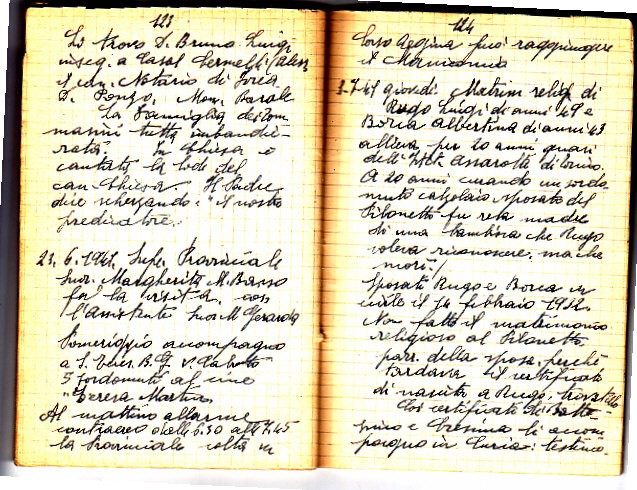 123
Lo trovo D. Bruno Luigi
inseg. a Casal Cermelli (Aless
il can. Notario di Forea
D. Ponzo, Mons. Barale
La famiglia
tutta imbandie-
rata. In Chiesa è
cantata la lode del
can. Chiesa. Il Padre
dice scherzando: "il nostro
predicatore.
21. 6. 1941. Sup. Provinciale
Suor Margherita M. Basso
fa la visita, con
l'assistente Suor M. Gerarda
Pomeriggio accompagno
a S. Teres. B. G. V. Caboto
5 sordomute al cine
"Teresa Martin"
Al mattino allarme
contraereo dalle 6.30 alle 7.45
la Provinciale colta in
124
Corso Regina può raggiungere
il Monviso
3.7.41 giovedì. Matrim relig. di
Rugo Luigi di anni 49 e
Borca Albertina di anni 43
allieva per 20 anni quasi
dell'Istit. Assarotti di Torino.
A 20 anni quando un sordo-
muto calzolaio sposato del
Pilonetto fu resa madre
di una bambina che Rugo
voleva riconoscere, ma che
morì!
Sposati Rugo e Borca in
civile il 14 febbraio 1932.
Non fatto il matrimonio
religioso al Pilonetto
parr. della sposa, perché
tardava il certificato
di nascita a Rugo, trovatello
Coi certificati di Batte-
simo e Cresima li accom-
pagno in Curia: testimo-